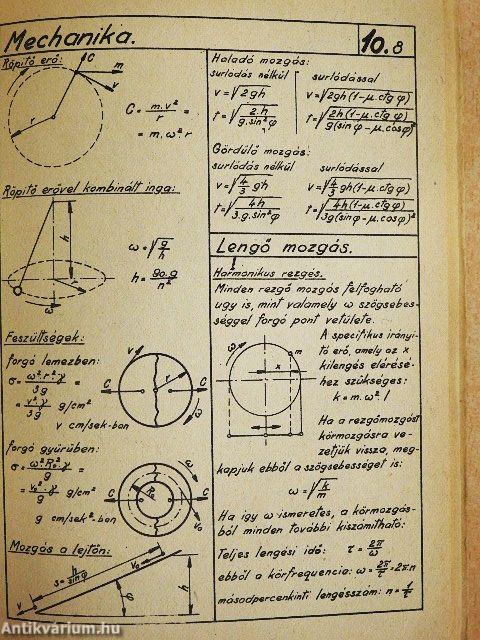 Mechanika.
10.8
Röpitő erő:
C
m
v
r
C = m.v² / r =
= m.ω².r
Röpitő erővel kombinált inga:
h
r
ω
ω = √g/h
h = 90.g / n²
Feszültségek:
forgó lemezben:
σ = ω².r².γ / 3g =
= v².γ / 3g g/cm²
v cm/sek-ban
v
r
C
C
ω
forgó gyürüben:
σ = ω².R₀².γ / g =
= v₀².γ / g g/cm²
g cm/sek²-ban
R₀
C
C
ω
v₀
Mozgás a lejtőn:
s = h / sin φ
v₀
v
φ
h
Haladó mozgás:
surlódás nélkül
surlódással
v = √2gh
v = √2gh(1-μ.ctg φ)
t = √2.h / g.sin²φ
t = √2h(1-μ.ctg φ) / g(sin φ-μ.cos φ)²
Gördülő mozgás:
surlódás nélkül
surlódással
v = √4/3 gh
v = √4/3 gh(1-μ.ctg φ)
t = √4h / 3.g.sin²φ
t = √4h(1-μ.ctg φ) / 3g(sin φ-μ.cos φ)²
Lengő mozgás.
Harmonikus rezgés.
Minden rezgő mozgás felfogható
ugy is, mint valamely ω szögsebes-
séggel forgó pont vetülete.
ω
m
x
A specifikus irányi-
tó erő, amely az x
kilengés elérésé-
hez szükséges:
k = m.ω² !
Ha a rezgőmozgást
körmozgásra ve-
zetjük vissza, meg-
kapjuk ebből a szögsebességet is:
ω = √k/m
Ha igy ω ismeretes, a körmozgás-
ból minden további kiszámitható:
Teljes lengési idő: τ = 2π/ω
ebből a körfrequencia: ω = 2π/τ = 2πn
másodpercenkinti lengésszám: n = 1/τ
Antikvárium.hu